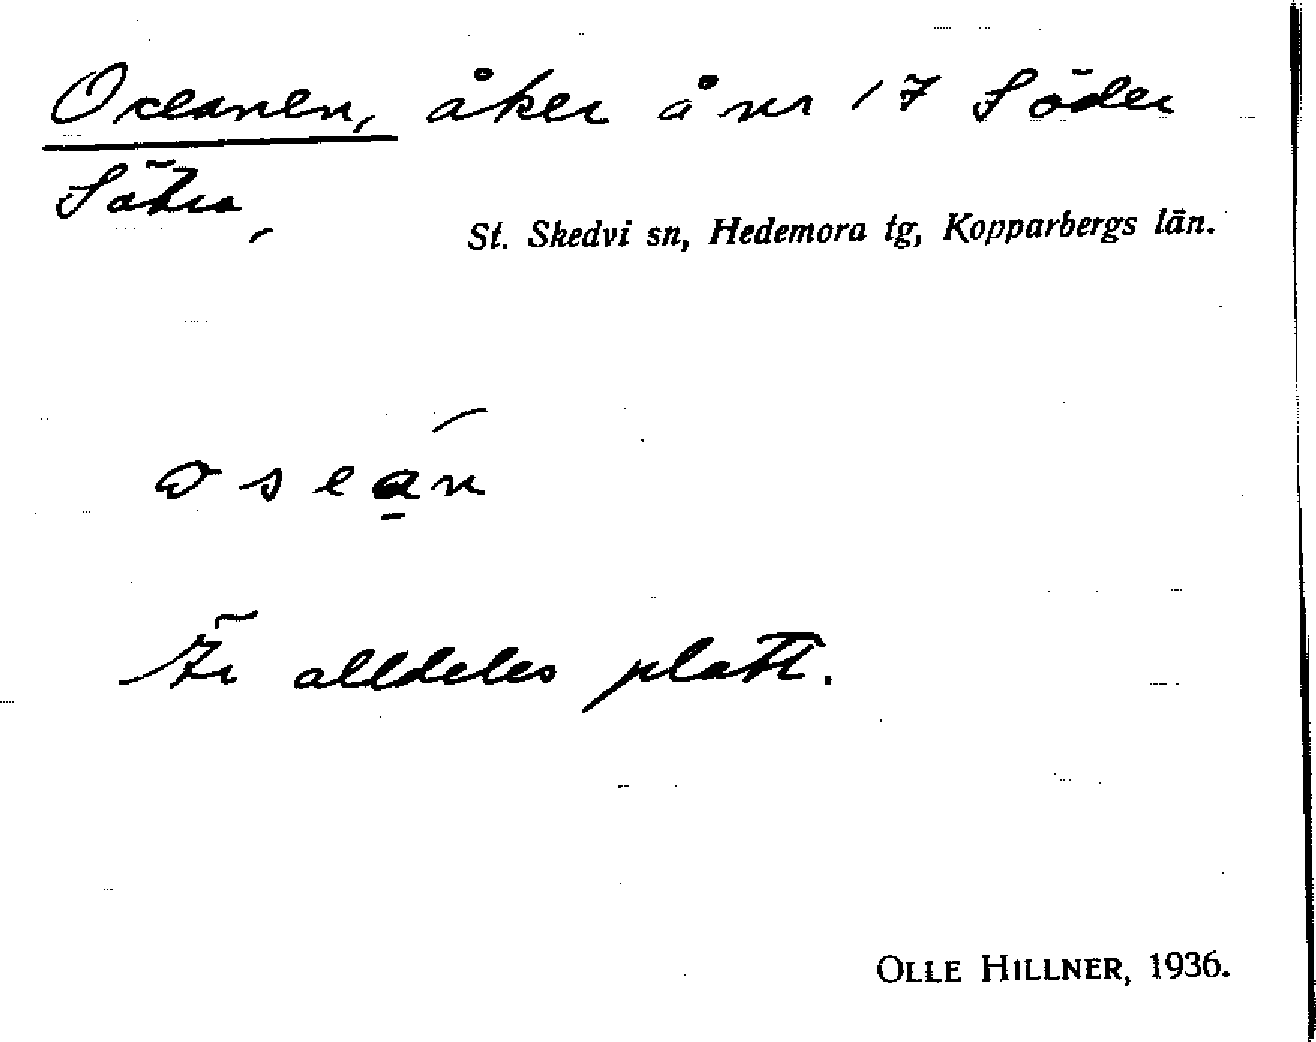 Oceanen, åker å nr 17 Söder
Sätra,
St. Skedvi sn, Hedemora tg, Kopparbergs län.
oseán
Är alldeles platt.
OLLE HILLNER, 1936.